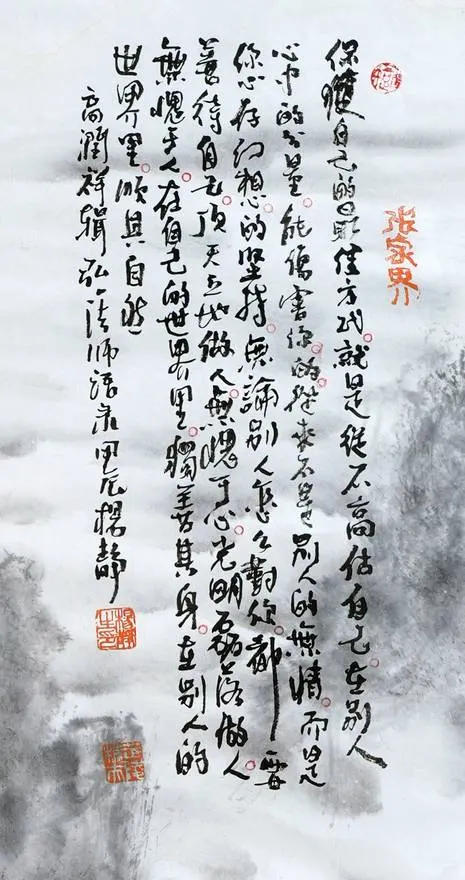 张家界
保護自己的最佳方式就是從不高估自己在別人
心中的分量能傷害你的從來不是別人的無情而是
你心存幻想的堅持無論別人怎么對你都要
善待自己頂天立地做人無愧于心光明磊落做人
無愧于人在自己的世界里獨善其身在別人的
世界里順其自然
高潤祥辑弘一法师語录楊靜